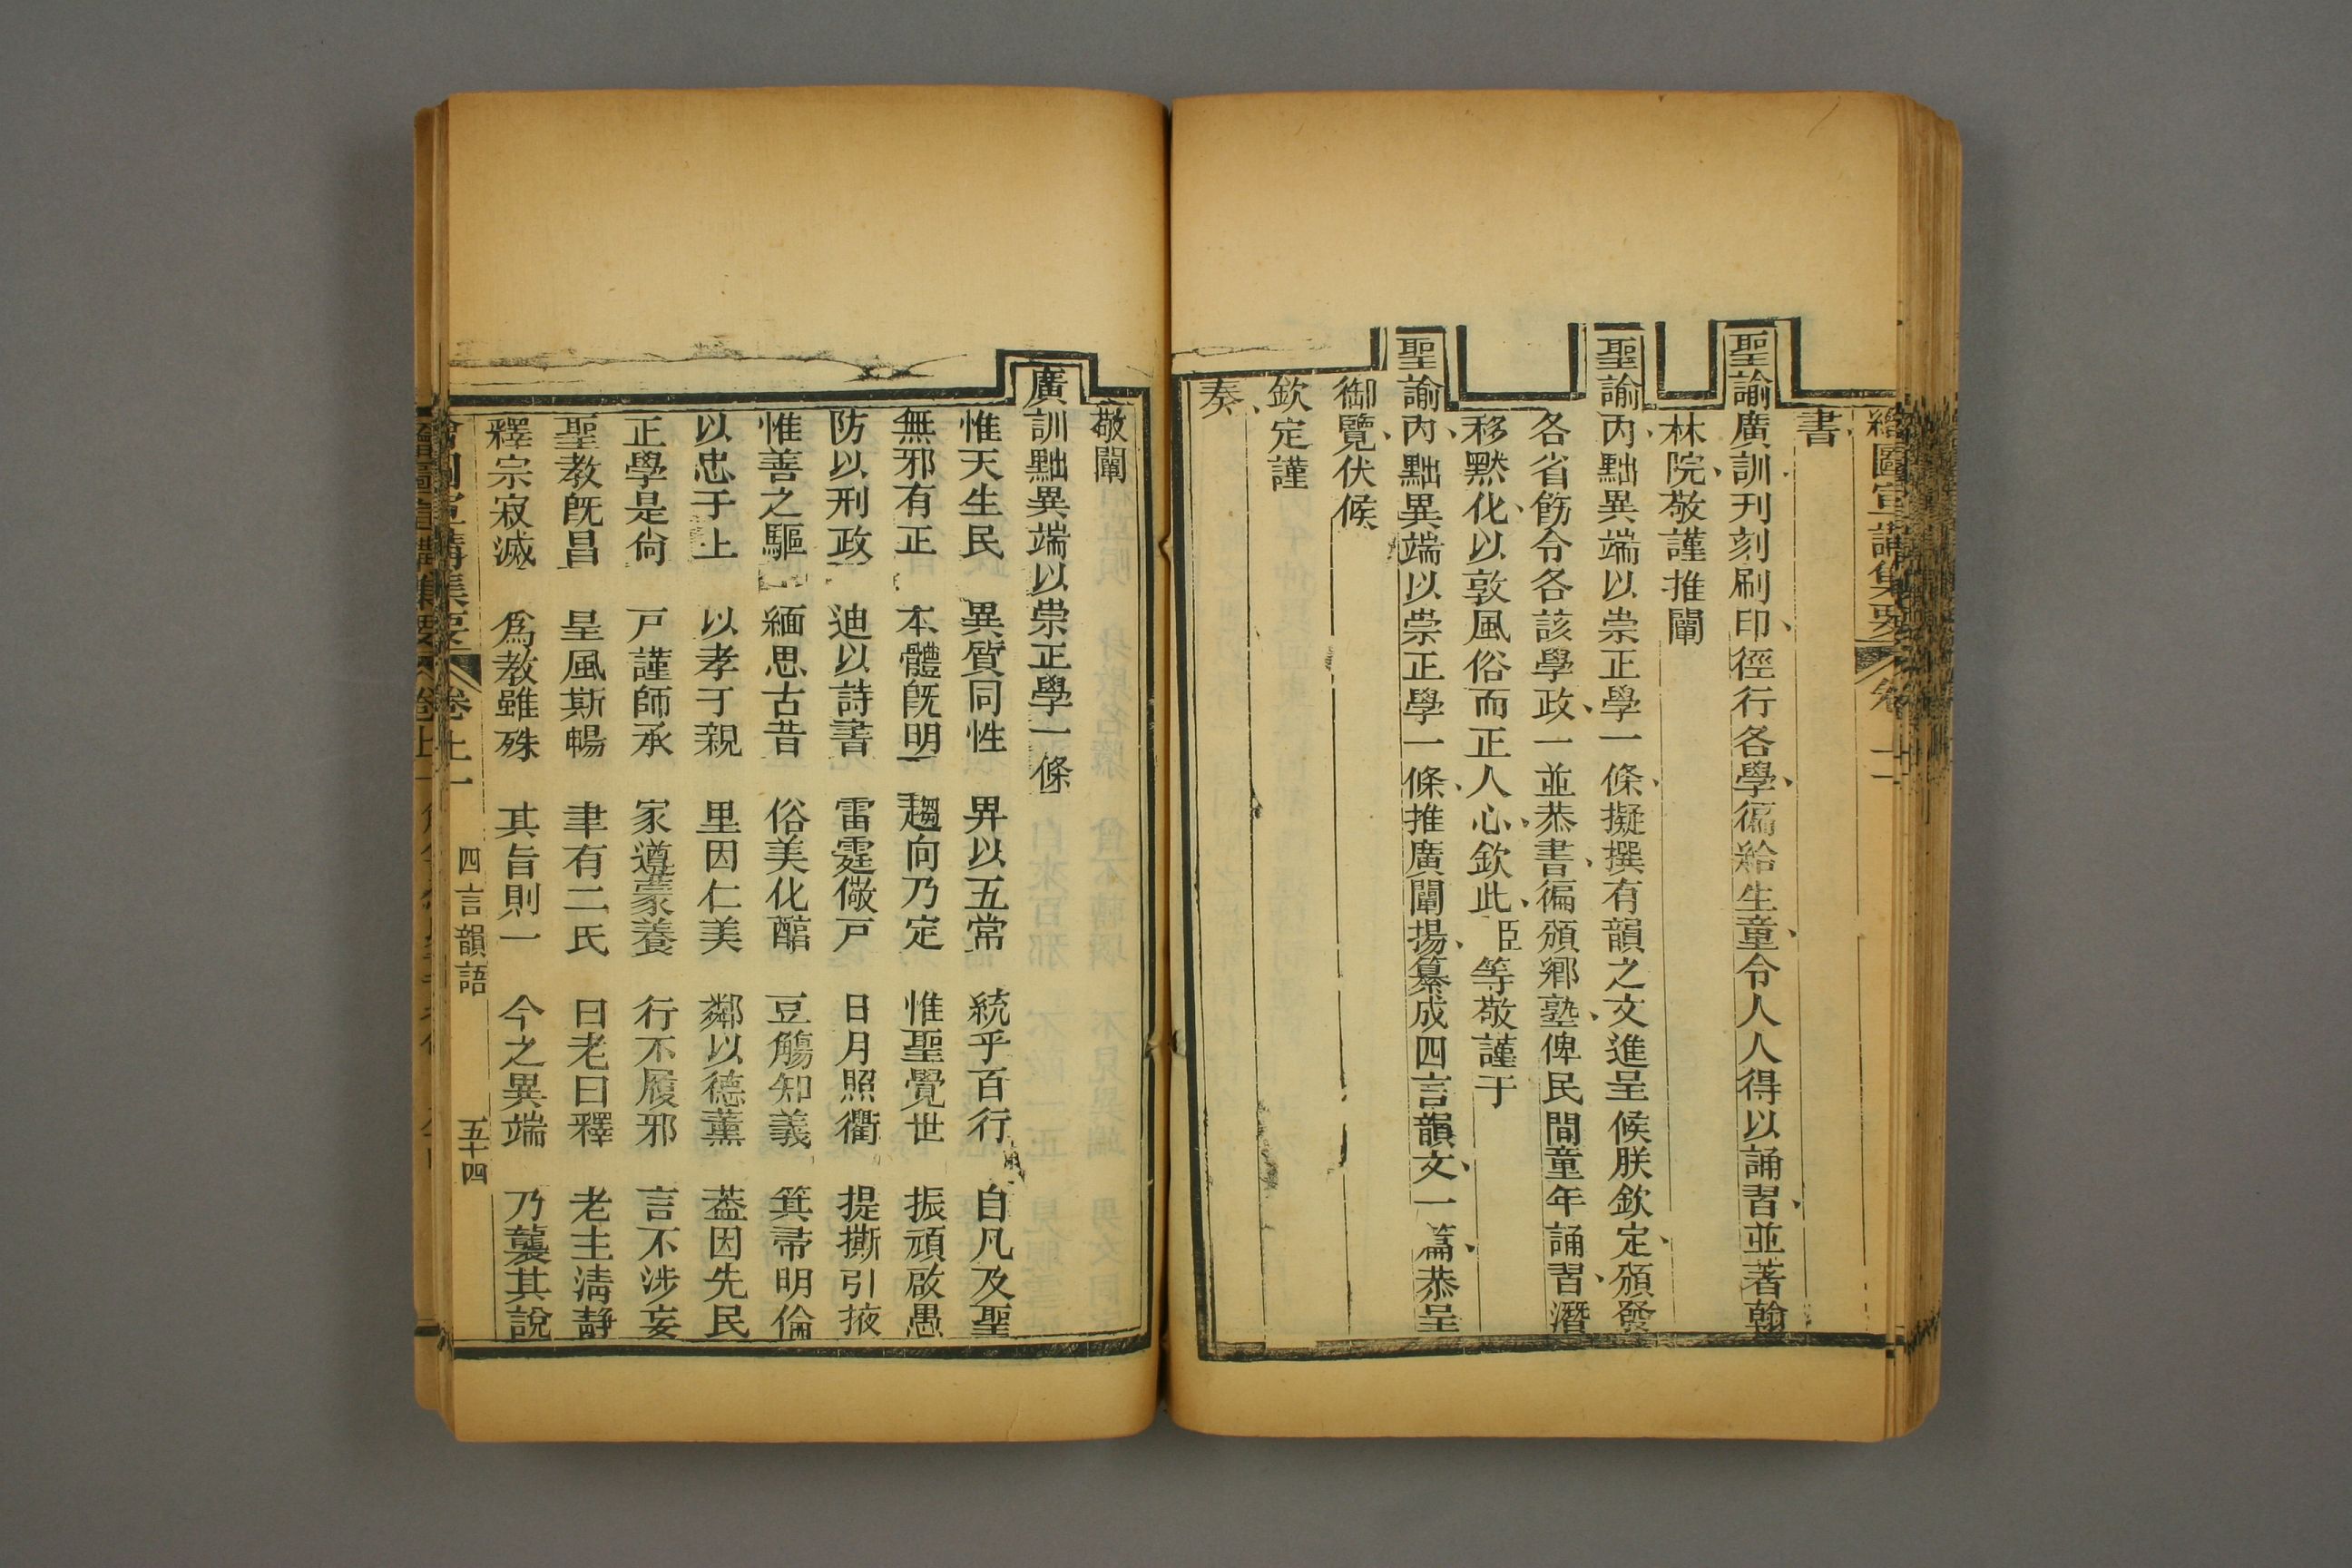 繪圖宣講集要 卷十一
書
聖諭廣訓刊刻刷印、徑行各學、徧給生童、令人人得以誦習、並著翰
林院、敬謹推闡
聖諭、內黜異端以崇正學一條、擬撰有韻之文、進呈候朕欽定、頒發
各省飭令各該學政、一並恭書、徧頒鄉塾、俾民間童年誦習、潛
移默化、以敦風俗而正人心、欽此、臣等敬謹于
聖諭、內黜異端以崇正學一條、推廣闡揚、纂成四言韻文、一篇、恭呈
御覽、伏候
欽定謹
奏、
敬闡
廣訓黜異端以崇正學一條
惟天生民 異質同性 畀以五常 統乎百行 自凡及聖
無邪有正 本體旣明 趨向乃定 惟聖覺世 振頑啟愚
防以刑政 迪以詩書 雷霆儆戸 日月照衢 提撕引掖
惟善之驅 緬思古昔 俗美化醕 豆觴知義 箕帚明倫
以忠于上 以孝于親 里因仁美 鄰以德薰 葢因先民
正學是尙 戸謹師承 家遵蒙養 行不履邪 言不涉妄
聖教旣昌 皇風斯暢 聿有二氏 曰老曰釋 老主淸靜
釋宗寂滅 爲教雖殊 其旨則一 今之異端 乃襲其說
繪圖宣講集要 卷十一 四言韻語 五十四